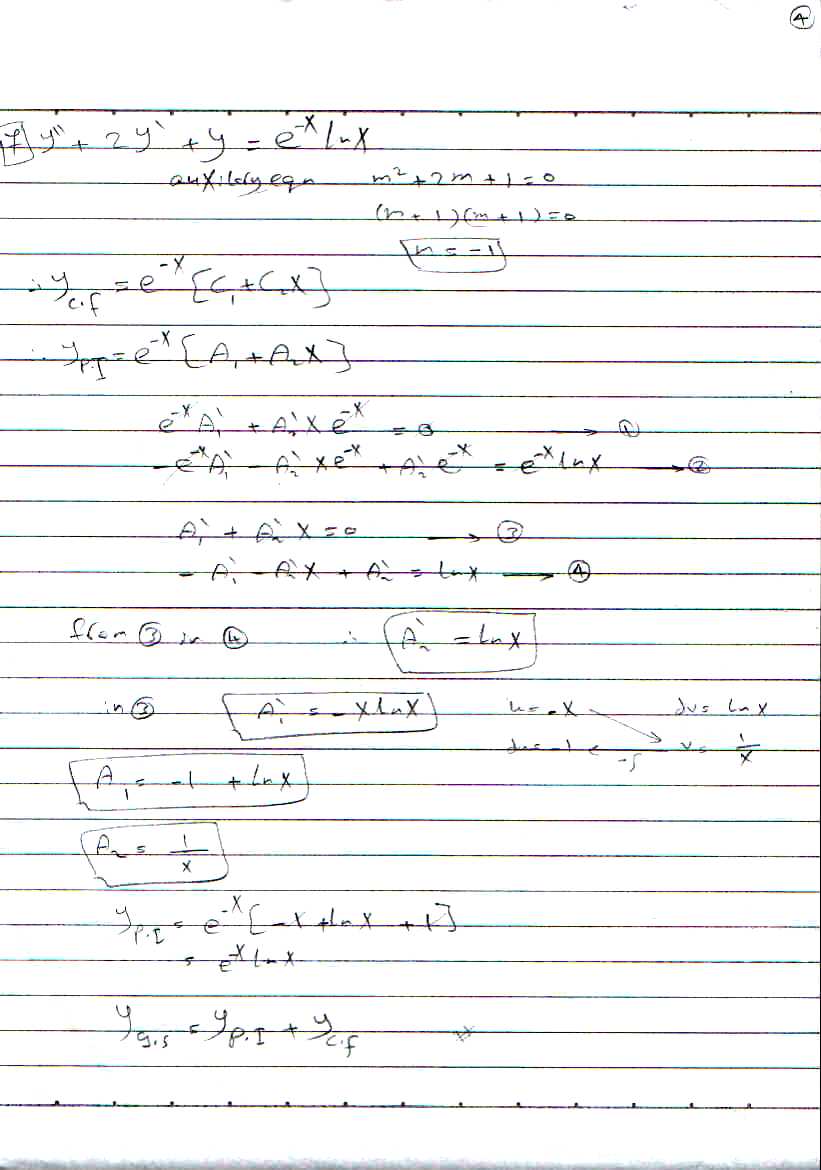 ④
7 y'' + 2y' + y = e^-x ln x
auxilary eqn m² + 2m + 1 = 0
(m + 1)(m + 1) = 0
m = -1
∴ y_c.f = e^-x [C₁ + C₂x]
∴ y_P.I = e^-x [A₁ + A₂x]
e^-x A₁' + A₂' x e^-x = 0 → ①
-e^-x A₁' - A₂' x e^-x + A₂' e^-x = e^-x ln x → ②
A₁' + A₂' x = 0 → ③
- A₁' - A₂' x + A₂' = ln x → ④
from ③ in ④ ∴ A₂' = ln x
in ③ A₁' = -x ln x u = -x dv = ln x
du = -1 -∫ v = 1/x
A₁ = -1 + ln x
A₂ = 1/x
y_P.I = e^-x [-1 + ln x + 1]
= e^-x ln x
y_g.s = y_P.I + y_c.f